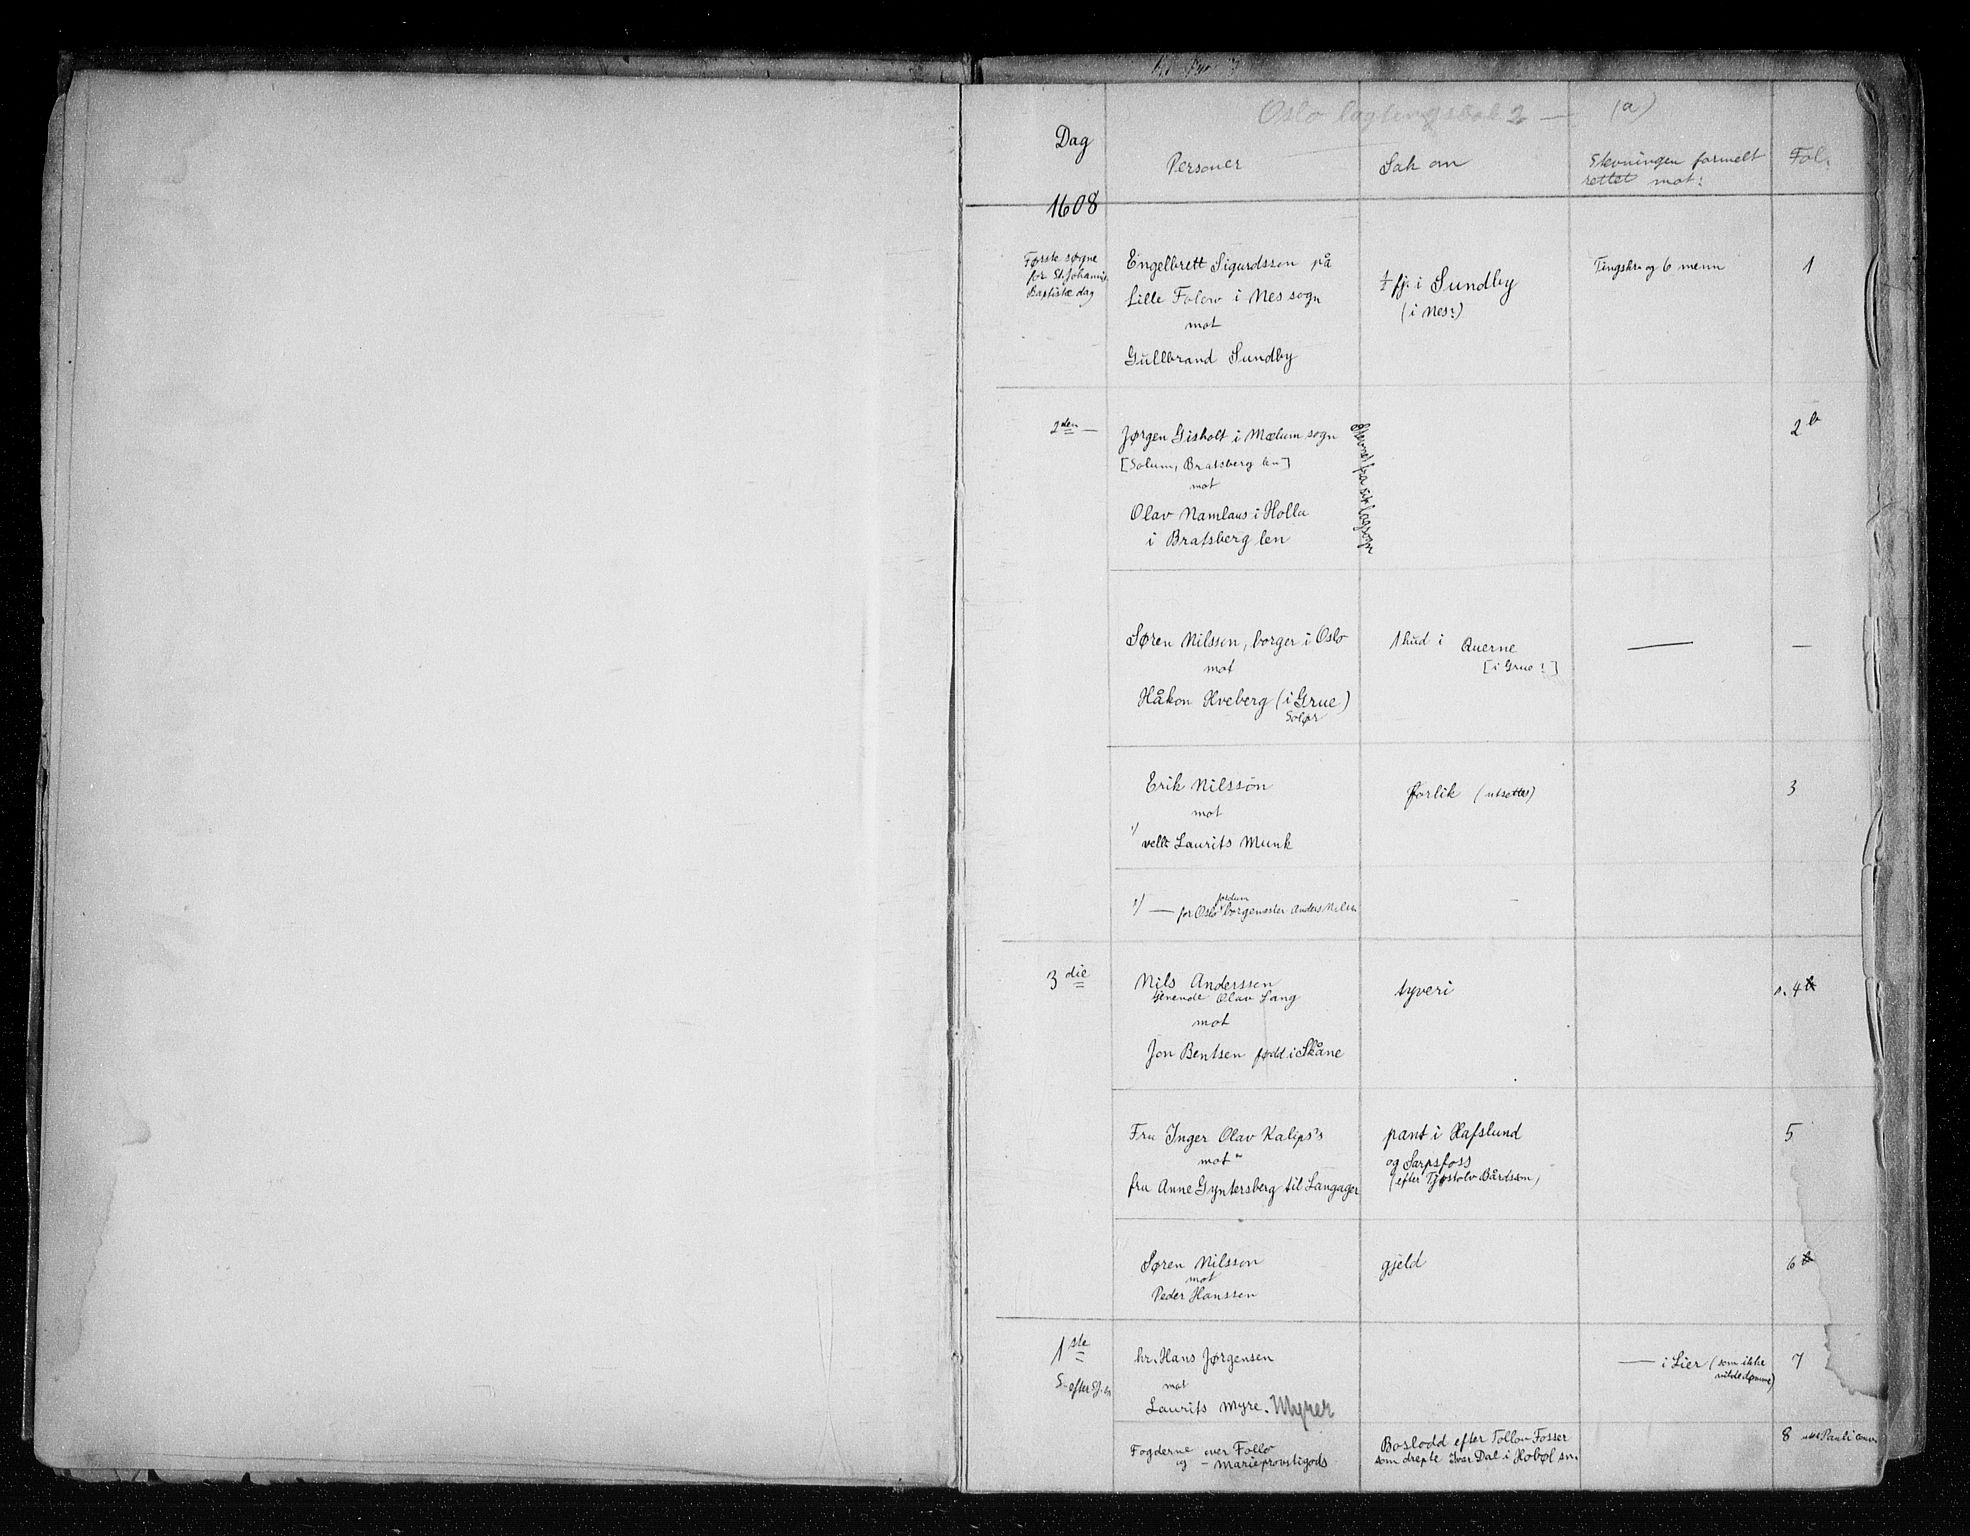 Oslo lagtingsbok 2 — (a)
Dag
Personer
Sak om
Stevningen formelt
rettet mot:
Fol.
1608
Første søgne
for St. Johannis
Baptistæ dag
Engelbrett Sigurdssøn på
Lille Folow i Nes sogn
mot
Gullbrand Sundby
½ fj. i Sundby
(i Nes?)
Tingskr. og 6 menn
1
2den —
Jørgen Gisholt i Mælum sogn
[Solum, Bratsberg len]
mot
Olav Namlaus i Holla
i Bratsberg len
Stevnet fra sit lagsogn
2 b
Søren Nilssøn, borger i Oslo
mot
Håkon Kveberg (i Grue)
Solør
1 hud i Querne
[i Grue?]
—
—
Erik Nilssøn
mot
1) velb. Laurits Munk
forlik (utsettes)
3
1) — for Oslo fordum borgemester Anders Nilss.
3die
Nils Anderssen
tjenende Olav Lang
mot
Jon Bentsen født i Skåne
tyveri
4 b
Fru Inger Olav Kalips's
mot
fru Anne Gyntersberg til Langager
pant i Hafslund
og Sarpsfoss
(efter Tjøstolv Bårdssøn)
5
Søren Nilssøn
mot
Peder Hanssen
gjeld
6 b
1ste
S. efter St.
hr. Hans Jørgensen
mot
Laurits Myre. Myrer
— i Lier (som ikke
vilde dømme)
7
Fogderne over Follo
og — Marieprovstigods
Boslodd efter Tollov Fosser
som drepte Iver Dal i Hobøl sn.
8 Pauli conv.